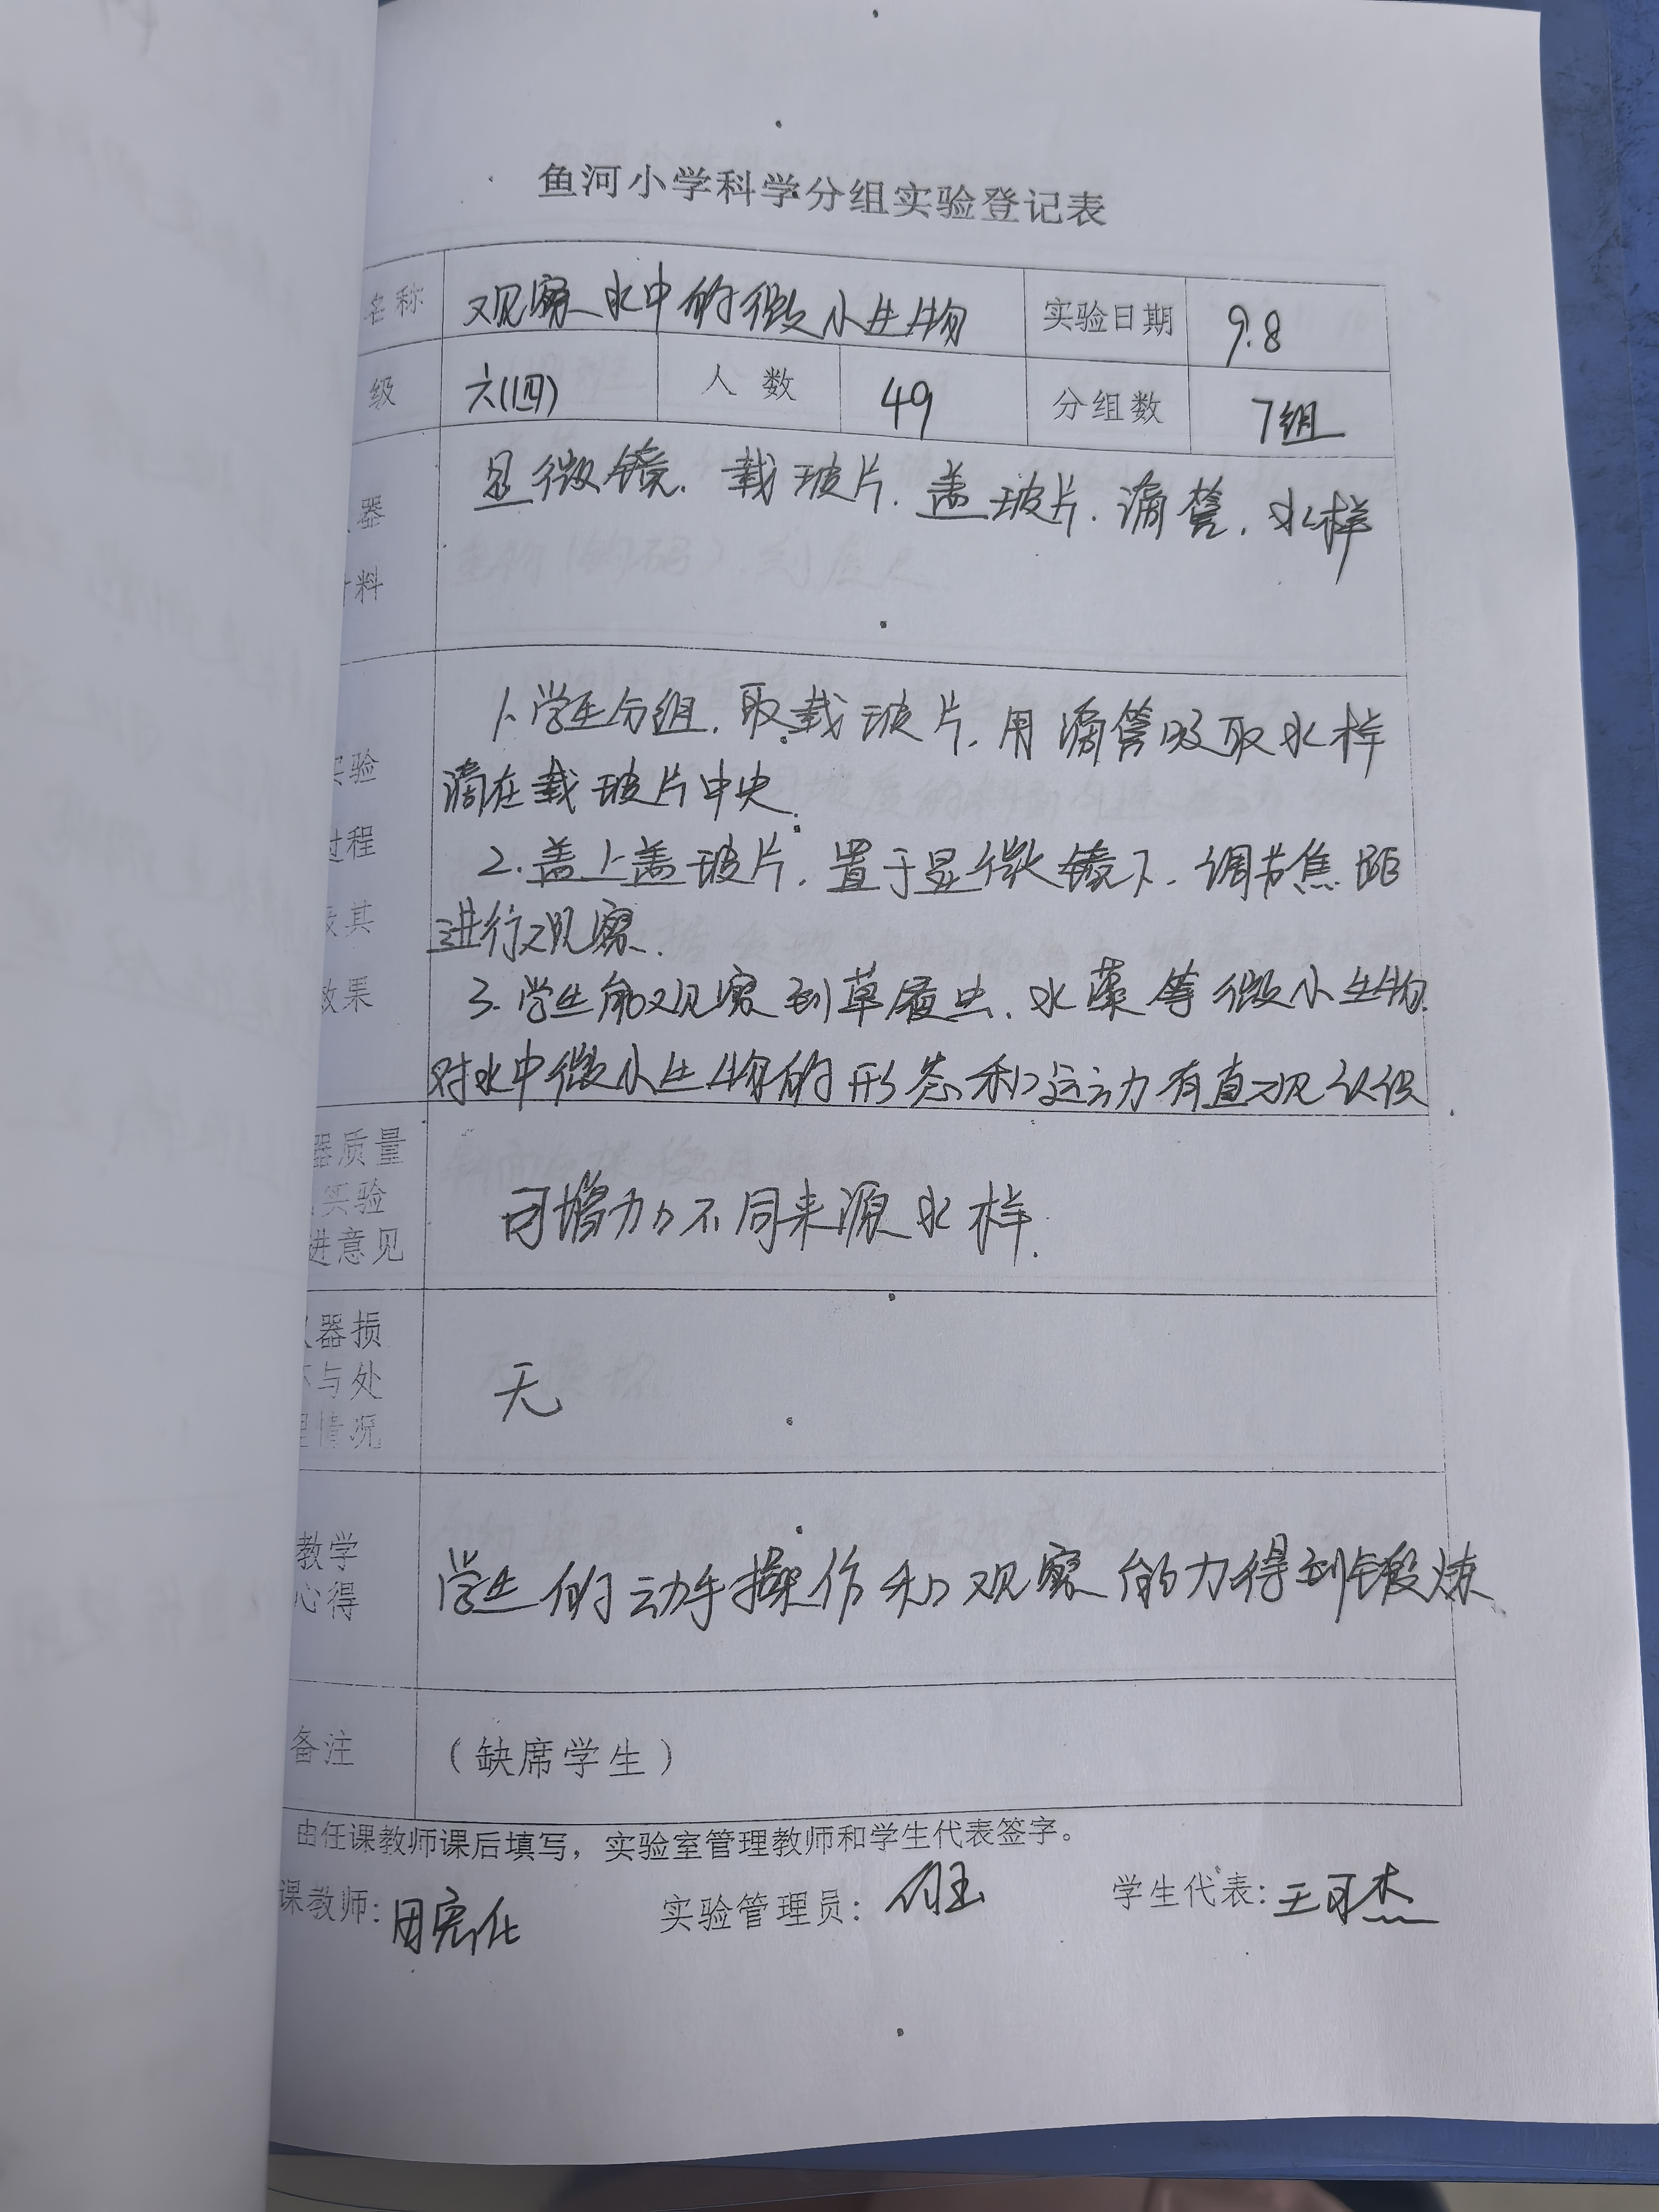 鱼河小学科学分组实验登记表
名称 观察水中的微小生物 实验日期 9.8
级 六(四) 人数 49 分组数 7组
器
料
显微镜. 载玻片. 盖玻片. 滴管. 水样
实验
过程
及其
效果
1. 学生分组. 取载玻片. 用滴管吸取水样
滴在载玻片中央.
2. 盖上盖玻片. 置于显微镜下. 调节焦距
进行观察.
3. 学生能观察到草履虫. 水藻等微小生物.
对水中微小生物的形态和运动力有直观认识
器质量
实验
进意见
可增加不同来源水样.
器损
与处
理情况
无
教学
心得
学生的动手操作和观察能力得到锻炼.
备注 （缺席学生）
由任课教师课后填写，实验室管理教师和学生代表签字。
课教师: 实验管理员: 学生代表: 王可杰